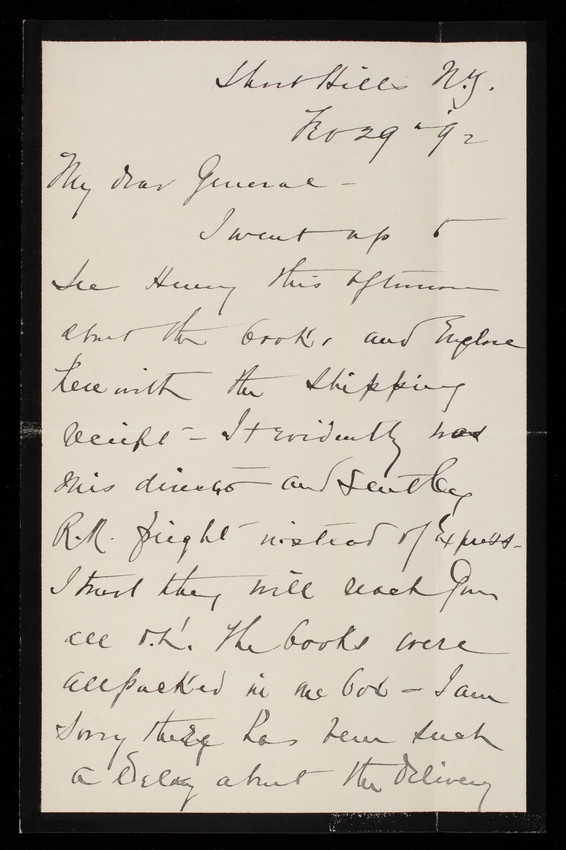 Short Hills N.J.
Feb 29th '92
My dear General -
I went up to
see Henry this afternoon
about the books, and Enclose
herewith the shipping
receipt - It evidently was
mis directed and sent by
R.R. freight instead of Express -
I trust they will reach you
all o.k. The books were
all packed in one box - I am
sorry there has been such
a delay about the delivery